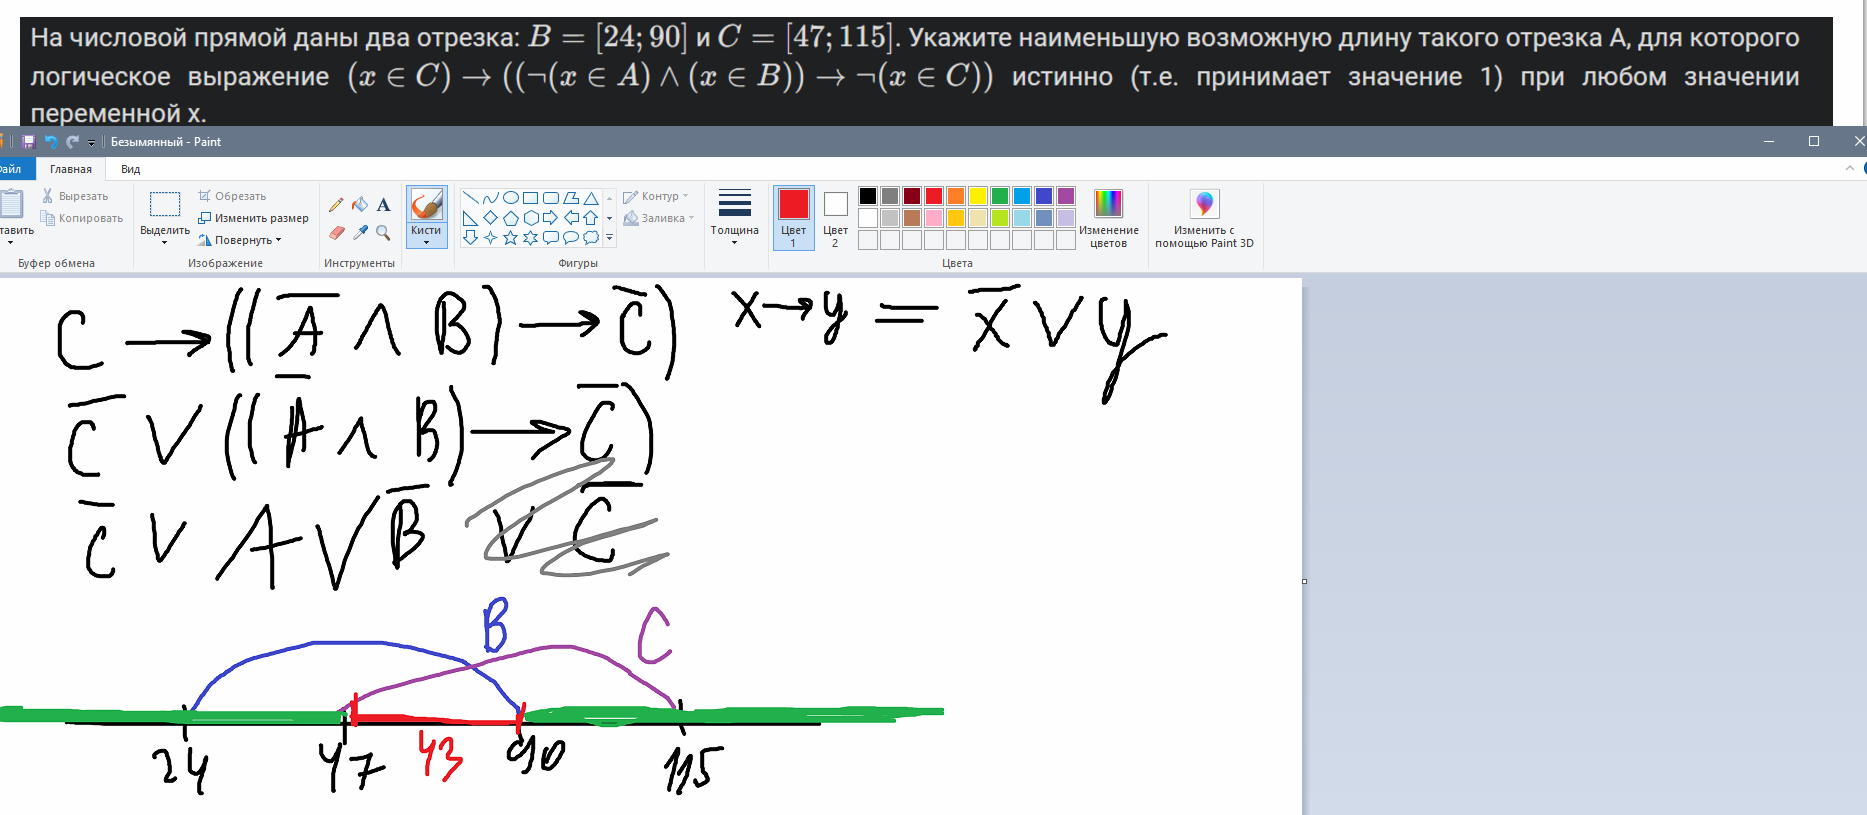 На числовой прямой даны два отрезка: B = [24; 90] и C = [47; 115]. Укажите наименьшую возможную длину такого отрезка A, для которого
логическое выражение (x ∈ C) → ((¬(x ∈ A) ∧ (x ∈ B)) → ¬(x ∈ C)) истинно (т.е. принимает значение 1) при любом значении
переменной x.
Безымянный - Paint
айл Главная Вид
Вырезать
Копировать
тавить
Буфер обмена
Выделить
Обрезать
Изменить размер
Повернуть
Изображение
A
Инструменты
Кисти
Контур
Заливка
Фигуры
Толщина
Цвет
1
Цвет
2
Изменение
цветов
Цвета
Изменить с
помощью Paint 3D
C → ((A̅ ∧ B) → C̅) x → y = x̅ ∨ y
C̅ ∨ ((A̅ ∧ B) → C̅)
C̅ ∨ A ∨ B̅ ∨ C̅
B C
24 47 43 90 115